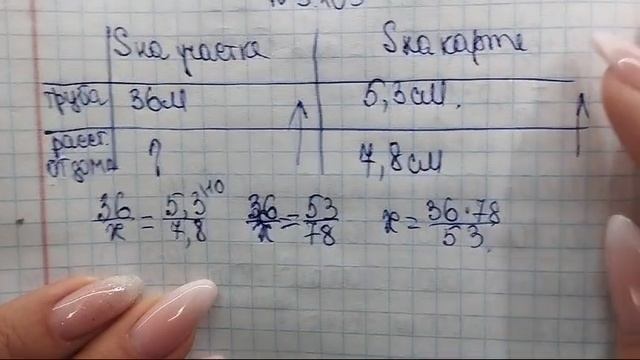 S на участке S на карте
труба 36м 5,3 см.
расст. от дома ? 7,8 см
36/x = 5,3/7,8 ·10 36/x = 53/78 x = 36·78/53